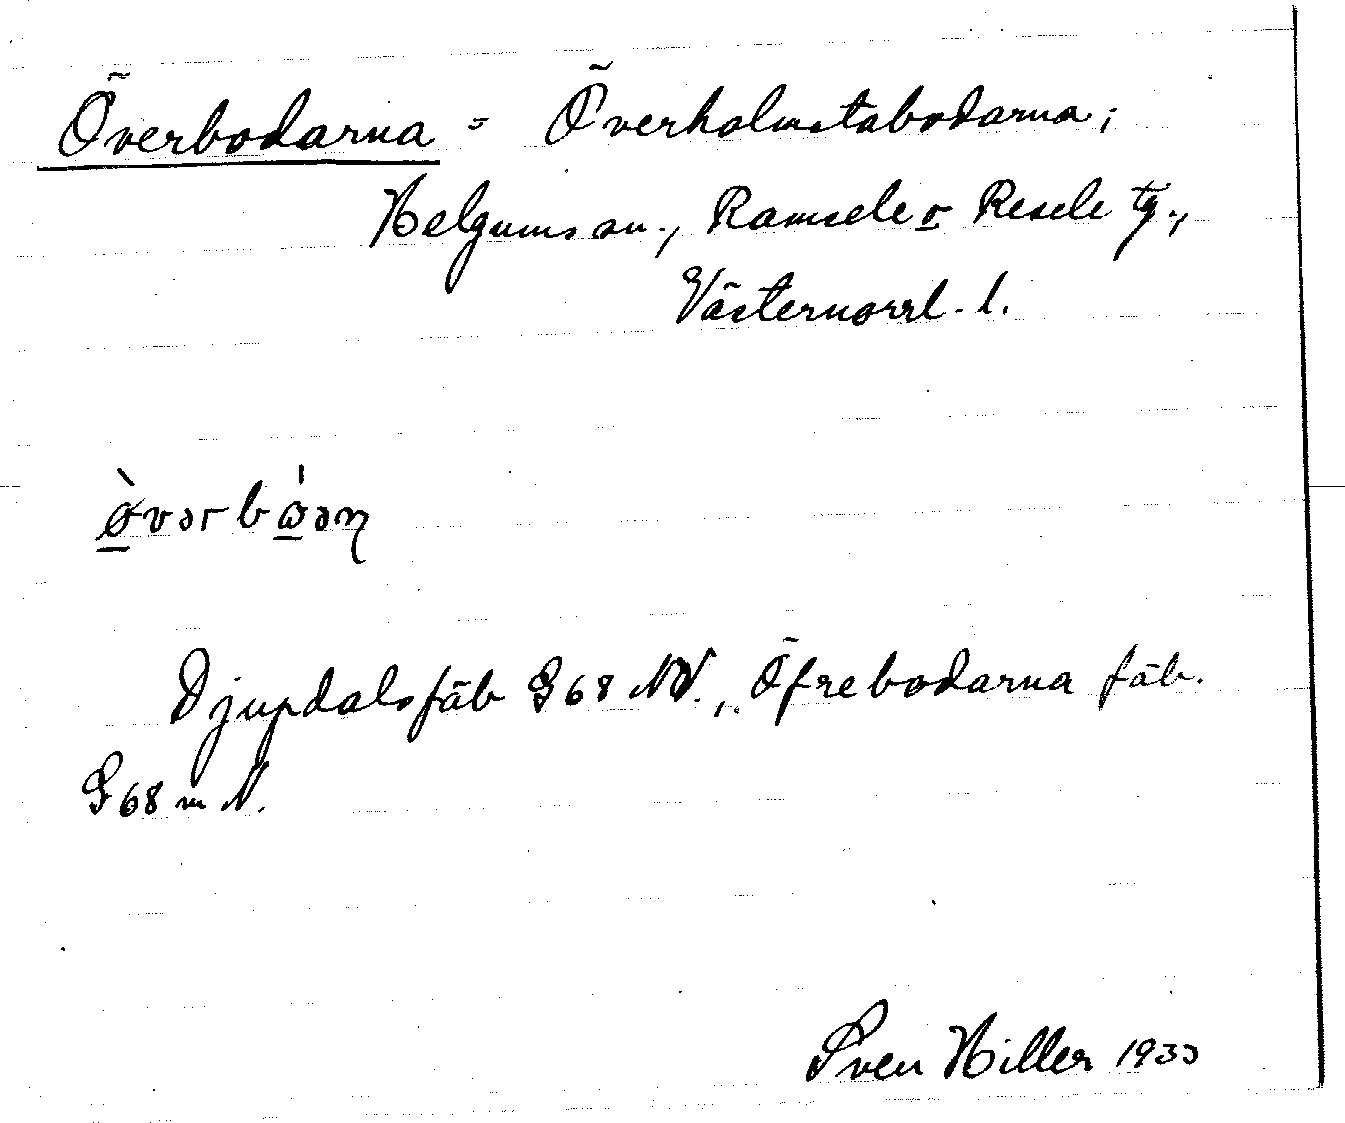 Överbodarna = Överholmstabodarna;
Helgums sn., Ramsele o Resele tg.,
Västernorrl. l.
ø̀vərbω̍ən
Djupdalsfäb G68 NV., Öfrebodarna fäb.
G68 m N.
Sven Hiller 1933